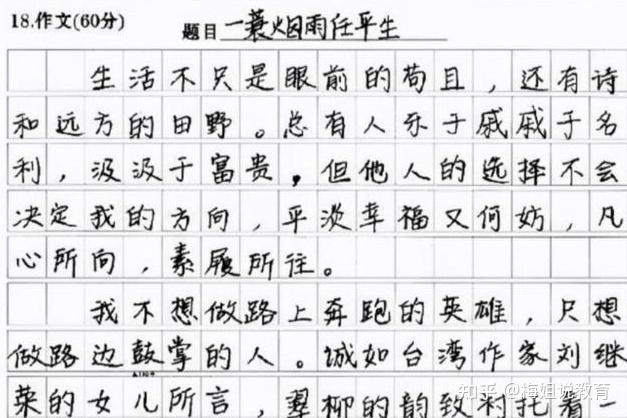 18.作文(60分) 题目 一蓑烟雨任平生
生活不只是眼前的苟且，还有诗
和远方的田野。总有人乐于戚戚于名
利，汲汲于富贵，但他人的选择不会
决定我的方向，平淡幸福又何妨，凡
心所向，素履所往。
我不想做路上奔跑的英雄，只想
做路边鼓掌的人。诚如台湾作家刘继
荣的女儿所言，翠柳的韵致衬托着一
知乎 @梅姐说教育